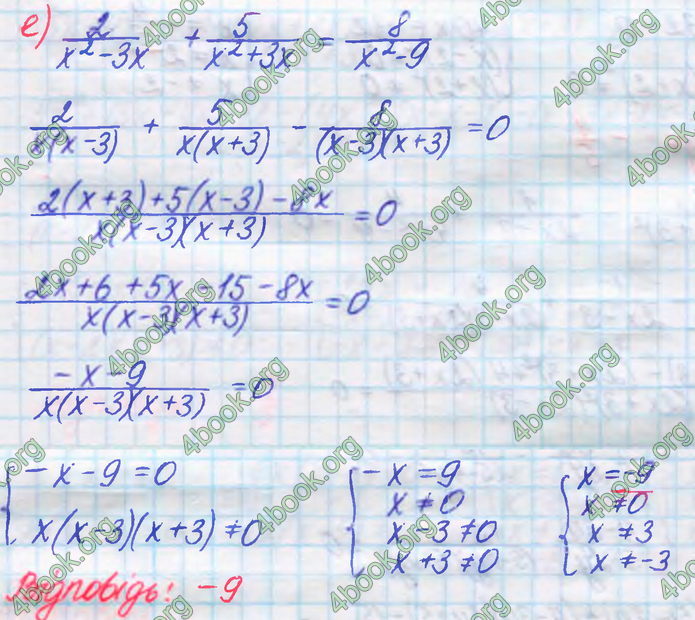 е) 2/(x²-3x) + 5/(x²+3x) = 8/(x²-9)
2/(x(x-3)) + 5/(x(x+3)) - 8/((x-3)(x+3)) = 0
(2(x+3)+5(x-3)-8x)/(x(x-3)(x+3)) = 0
(2x+6+5x-15-8x)/(x(x-3)(x+3)) = 0
(-x-9)/(x(x-3)(x+3)) = 0
{ -x-9=0 { -x=9 { x=-9
x≠0 x≠0
x(x-3)(x+3)≠0 x-3≠0 x≠3
x+3≠0 x≠-3
Відповідь: -9
4book.org